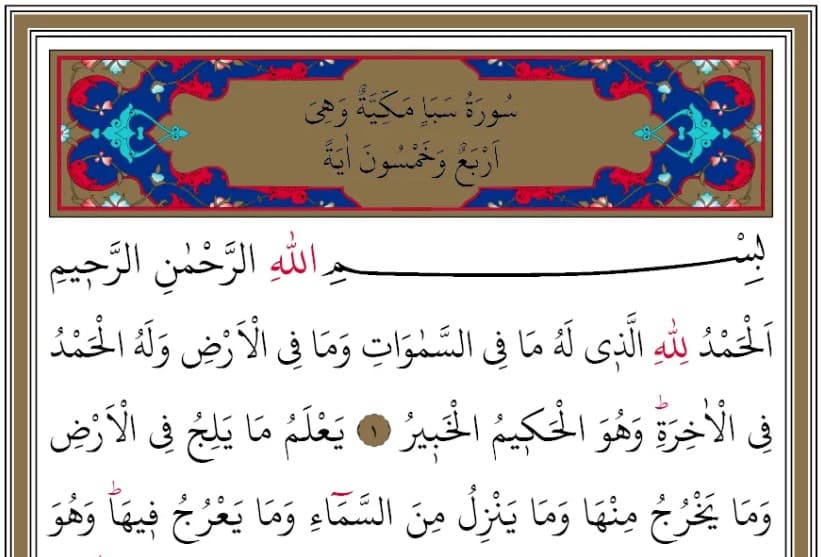 سُورَةُ سَبَاٍ مَكِّيَّةٌ وَهِىَ
اَرْبَعٌ وَخَمْسُونَ اٰيَةً
بِسْمِ اللّٰهِ الرَّحْمٰنِ الرَّحٖيمِ
اَلْحَمْدُ لِلّٰهِ الَّذٖى لَهُ مَا فِى السَّمٰوَاتِ وَمَا فِى الْاَرْضِ وَلَهُ الْحَمْدُ
فِى الْاٰخِرَةِؕ وَهُوَ الْحَكٖيمُ الْخَبٖيرُ ١ يَعْلَمُ مَا يَلِجُ فِى الْاَرْضِ
وَمَا يَخْرُجُ مِنْهَا وَمَا يَنْزِلُ مِنَ السَّمَٓاءِ وَمَا يَعْرُجُ فٖيهَاؕ وَهُوَ